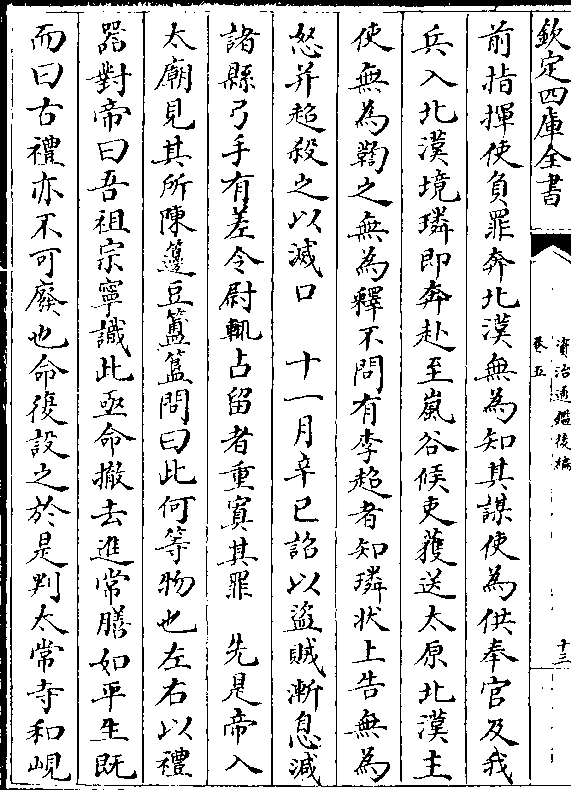 欽定四庫全書
資治通鑑後編
卷五
十三
前指揮使負罪奔北漢無為知其謀使為供奉官及我
兵入北漢境璘即奔赴至嵐谷候吏獲送太原北漢主
使無為鞫之無為釋不問有李超者知璘狀上告無為
怒并超殺之以滅口　十一月辛巳詔以盜賊漸息減
諸縣弓手有差令尉輒占留者重寘其罪　先是帝入
太廟見其所陳籩豆簠簋問曰此何等物也左右以禮
器對帝曰吾祖宗寧識此亟命撤去進常膳如平生既
而曰古禮亦不可廢也命復設之於是判太常寺和峴